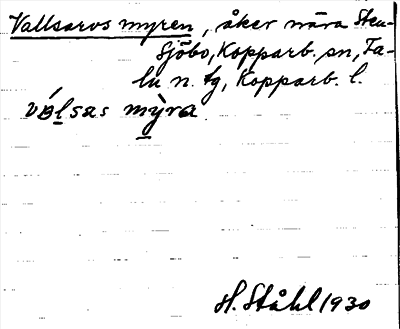 Vallsarvs myren, åker nära Sten-
sjöbo, Kopparb. sn, Fa-
lu n. tg, Kopparb. l.
válsas mỳra
H. Ståhl 1930